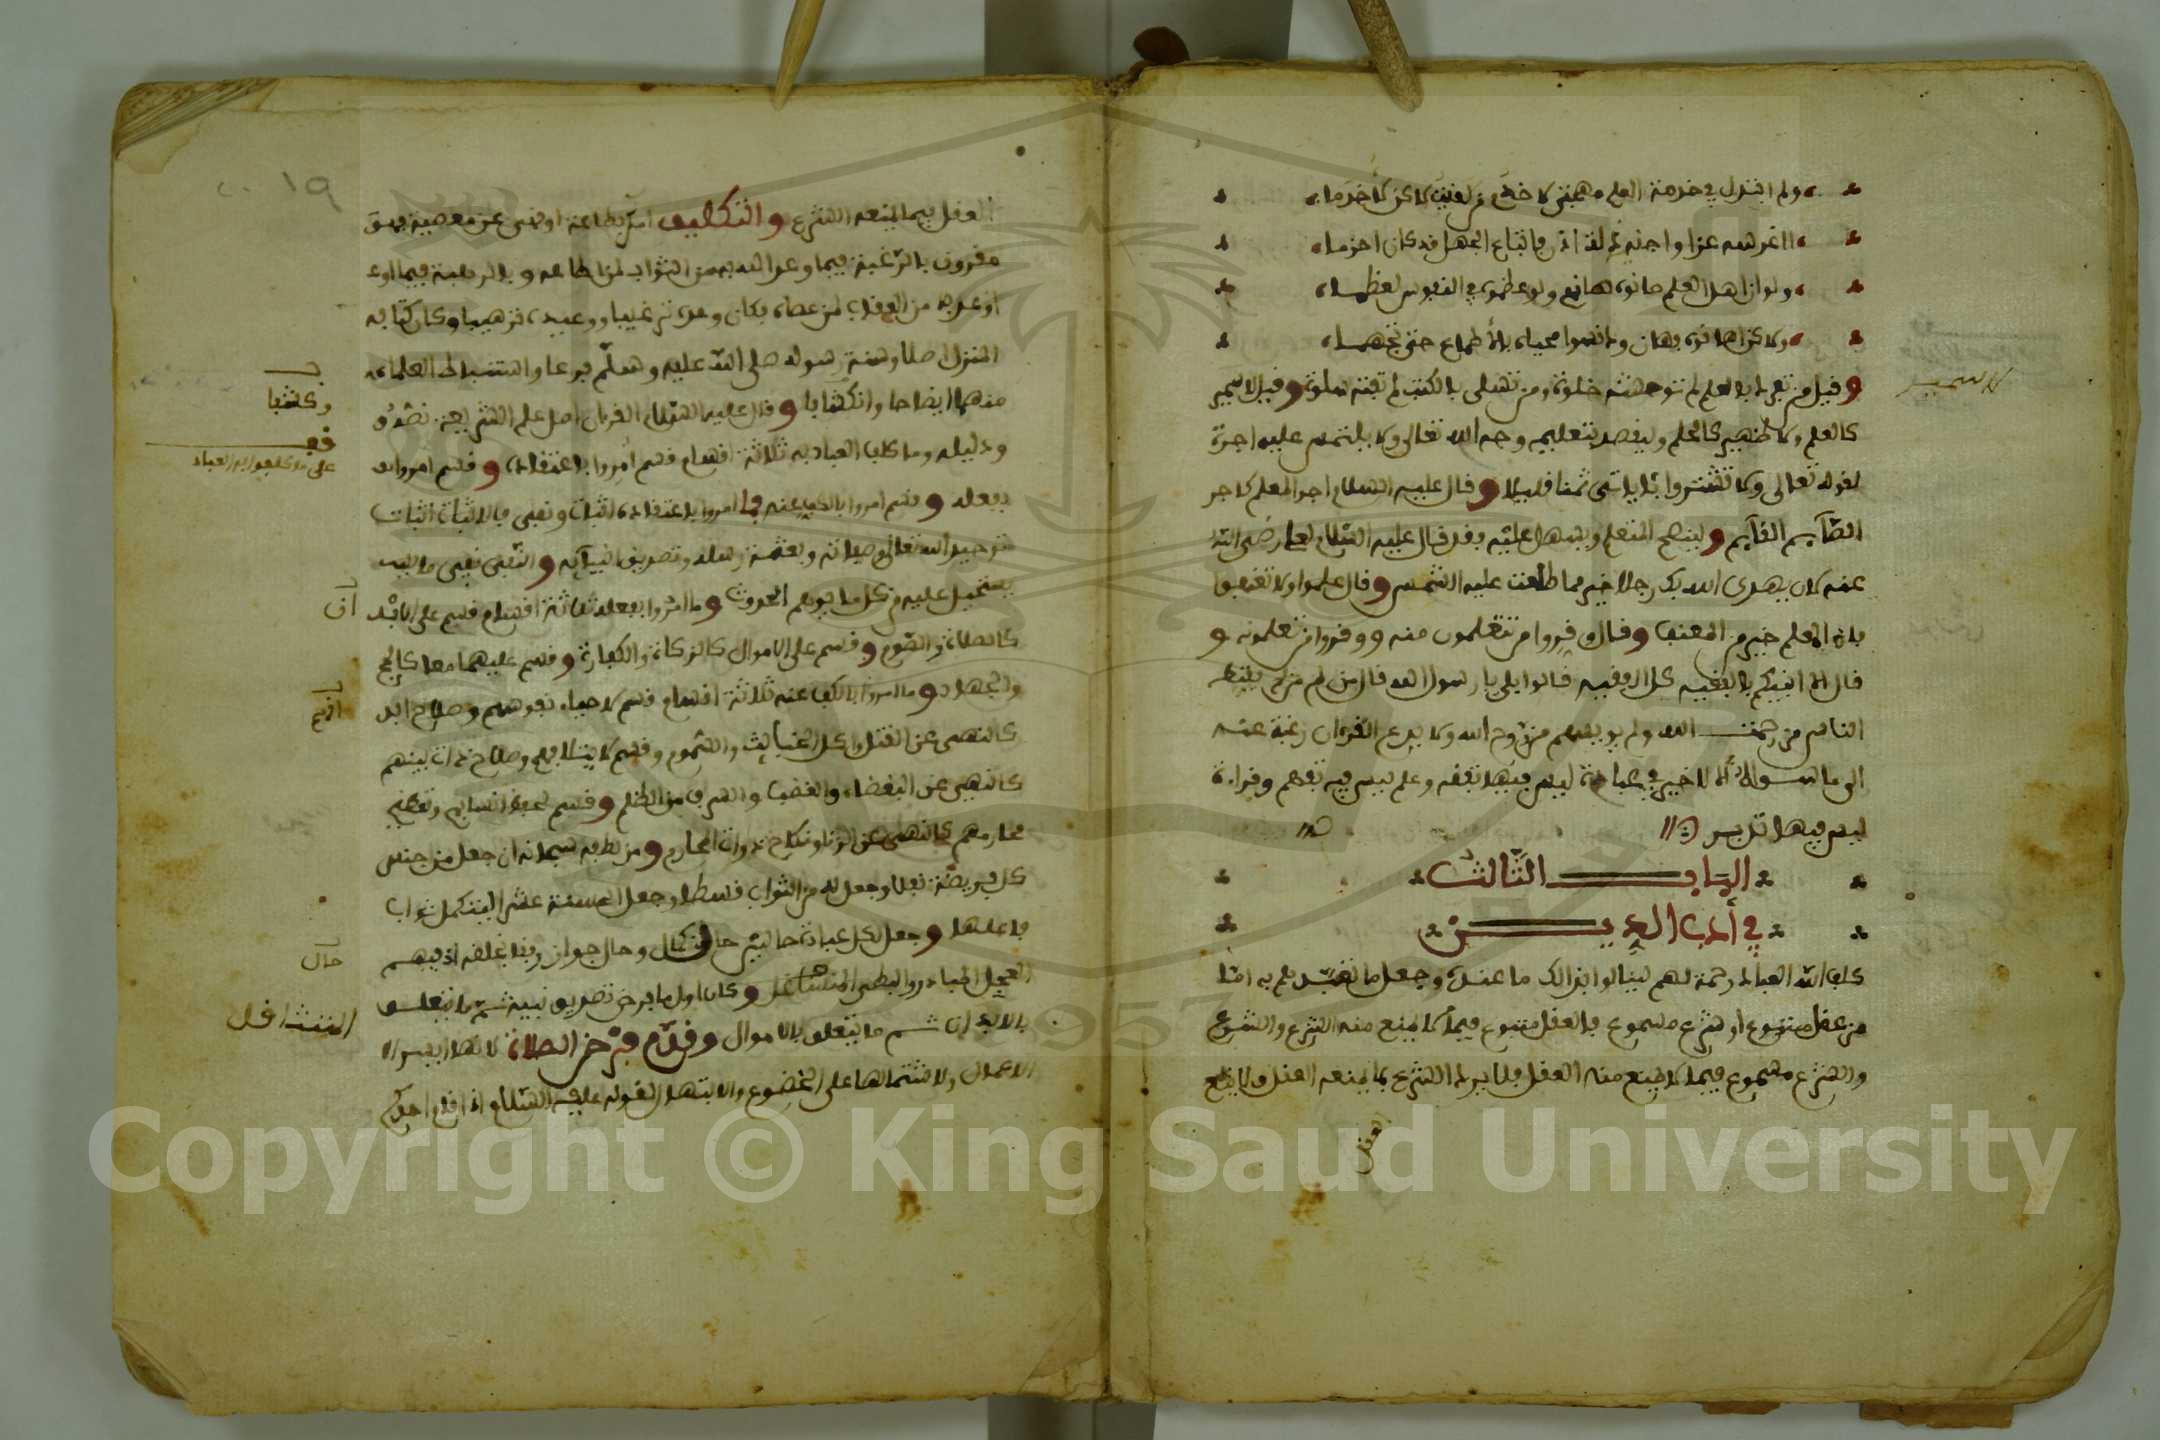 ولم ابتذل في خدمة العلم مهجتي لاخدم من لاقيت لاكن لأخدما
ااغرسه عزا واجنيه ذلة اذن فاتباع الجهل قد كان احزما
ولو ان اهل العلم صانوه صانهم ولو عظموه في النفوس لعظما
ولاكن اهانوه فهان ودنسوا محياه بالاطماع حتى تجهما
وقيل من تفرد بالعلم لم توحشه خلوة ومن تسلى بالكتب لم تفته سلوة وقيل لا سمير
كالعلم ولا ظهير كالحلم وليقصد بتعليمه وجه الله تعالى ولا يلتمس عليه اجرة
لقوله تعالى ولا تشتروا بئاياتي ثمنا قليلا وقال عليه السلام اجر المعلم كاجر
الصآيم القآيم ولينصح المتعلم ويسهل عليه فقد قال عليه السلام لعلي رضي الله
عنه لان يهدي الله بك رجلا خير مما طلعت عليه الشمس وقال علموا ولا تعنفوا
فان المعلم خير من المعنف وقال وقروا من تتعلمون منه ووقروا من تعلمونه و
قال الا انبيكم بالفقيه كل الفقيه قالوا بلى يا رسول الله قال من لم يقنط
الناس من رحمت الله ولم يويسهم من روح الله ولا يدع القرءان رغبة عنه
الى ما سواه ألا لا خير في عبادة ليس فيها تفقه وعلم ليس فيه تفهم وقراءة
ليس فيها تدبر
الباب الثالث
في أدب الدين
كلف الله العباد رحمة لهم لينالوا بذالك ما عنده وجعل ما تعبدهم به اخذا
من عقل متبوع او شرع مسموع فالعقل متبوع فيما لا يمنع منه الشرع
والشرع مسموع فيما لا يمنع منه العقل فلا يرد الشرع بما يمنعه العقل ولا يتبع
العقل
لا سمير
١٩
العقل فيما يمنعه الشرع والتكليف امر بطاعة او نهي عن معصية فهو
مقرون بالرغبة فيما وعد الله به من الثواب لمن اطاعه وبالرهبة فيما اوعد
اوعد به من العقاب لمن عصاه فكان وعده ترغيبا ووعيده ترهيبا وكان كتابه
المنزل اصلا وسنة رسوله صلى الله عليه وسلم فرعا واستنباط العلماء
منهما ايضاحا وانكشافا وقال عليه السلام القرءان اصل علم الشريعة نصه
ودليله وما كلف العباد به ثلاثة اقسام قسم امروا باعتقاده وقسم امروا
بفعله وقسم امروا بالكف عنه فما امروا باعتقاده اثبات ونفي فالاثبات اثبات
توحيد الله تعالى وصفاته وبعثة رسله وتصديق انبيآيه والنفي نفي ما
يستحيل عليه من كل ما يوهم الحدوث وما امروا بفعله ثلاثة اقسام قسم على الابد
كالصلاة والصوم وقسم على الاموال كالزكاة والكفارة وقسم عليهما معا كالحج
والجهاد وما امروا بالكف عنه ثلاثة اقسام قسم لاحياء نفوسهم وصلاح ابد
كالنهي عن القتل واكل الخبآيث والسموم وقسم لايتلافهم وصلاح ذات بينهم
كالنهي عن البغضاء والغضب والسرف من الظلم وقسم لحفظ انسابهم وتعظيم
محارمهم كالنهي عن الزنا ونكاح ذوات المحارم ومن لطفه سبحانه ان جعل من جنس
كل فريضة نفلا وجعل له من الثواب قسطا وجعل الحسنة عشرا ليتكمل ثواب
فاعلها وجعل لكل عبادة حالتين حال كمال وحال جواز رفقا بخلقه اذ فيهم
العجل المبادر والبطيء المتثاقل وكان اول ما فرض تصديق نبيه ثم ما يتعلق
بالابدان ثم ما يتعلق بالاموال وقدم فرض الصلاة لانها ايسر
الاعمال ولاشتمالها على الخضوع والابتهال لقوله عليه السلام اذا قام احدكم
وكشفا
على ما كلفوا به العباد
ان
انهم
حال
المتثاقل